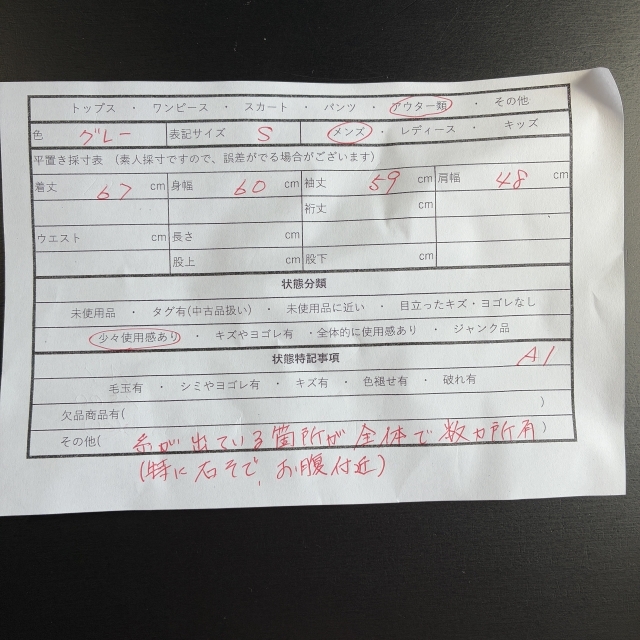 トップス ・ ワンピース ・ スカート ・ パンツ ・ アウター類 ・ その他
色 グレー 表記サイズ S メンズ ・ レディース ・ キッズ
平置き採寸表 (素人採寸ですので、誤差がでる場合がございます)
着丈 67 cm 身幅 60 cm 袖丈 59 cm 肩幅 48 cm
裄丈 cm
ウエスト cm 長さ cm
股上 cm 股下 cm
状態分類
未使用品 ・ タグ有(中古品扱い) ・ 未使用品に近い ・ 目立ったキズ・ヨゴレなし
少々使用感あり ・ キズやヨゴレ有 ・全体的に使用感あり ・ ジャンク品
状態特記事項 A1
毛玉有 ・ シミやヨゴレ有 ・ キズ有 ・ 色褪せ有 ・ 破れ有
欠品商品有( )
その他( 糸が出ている箇所が全体で数カ所有 )
(特に右そで、お腹付近)